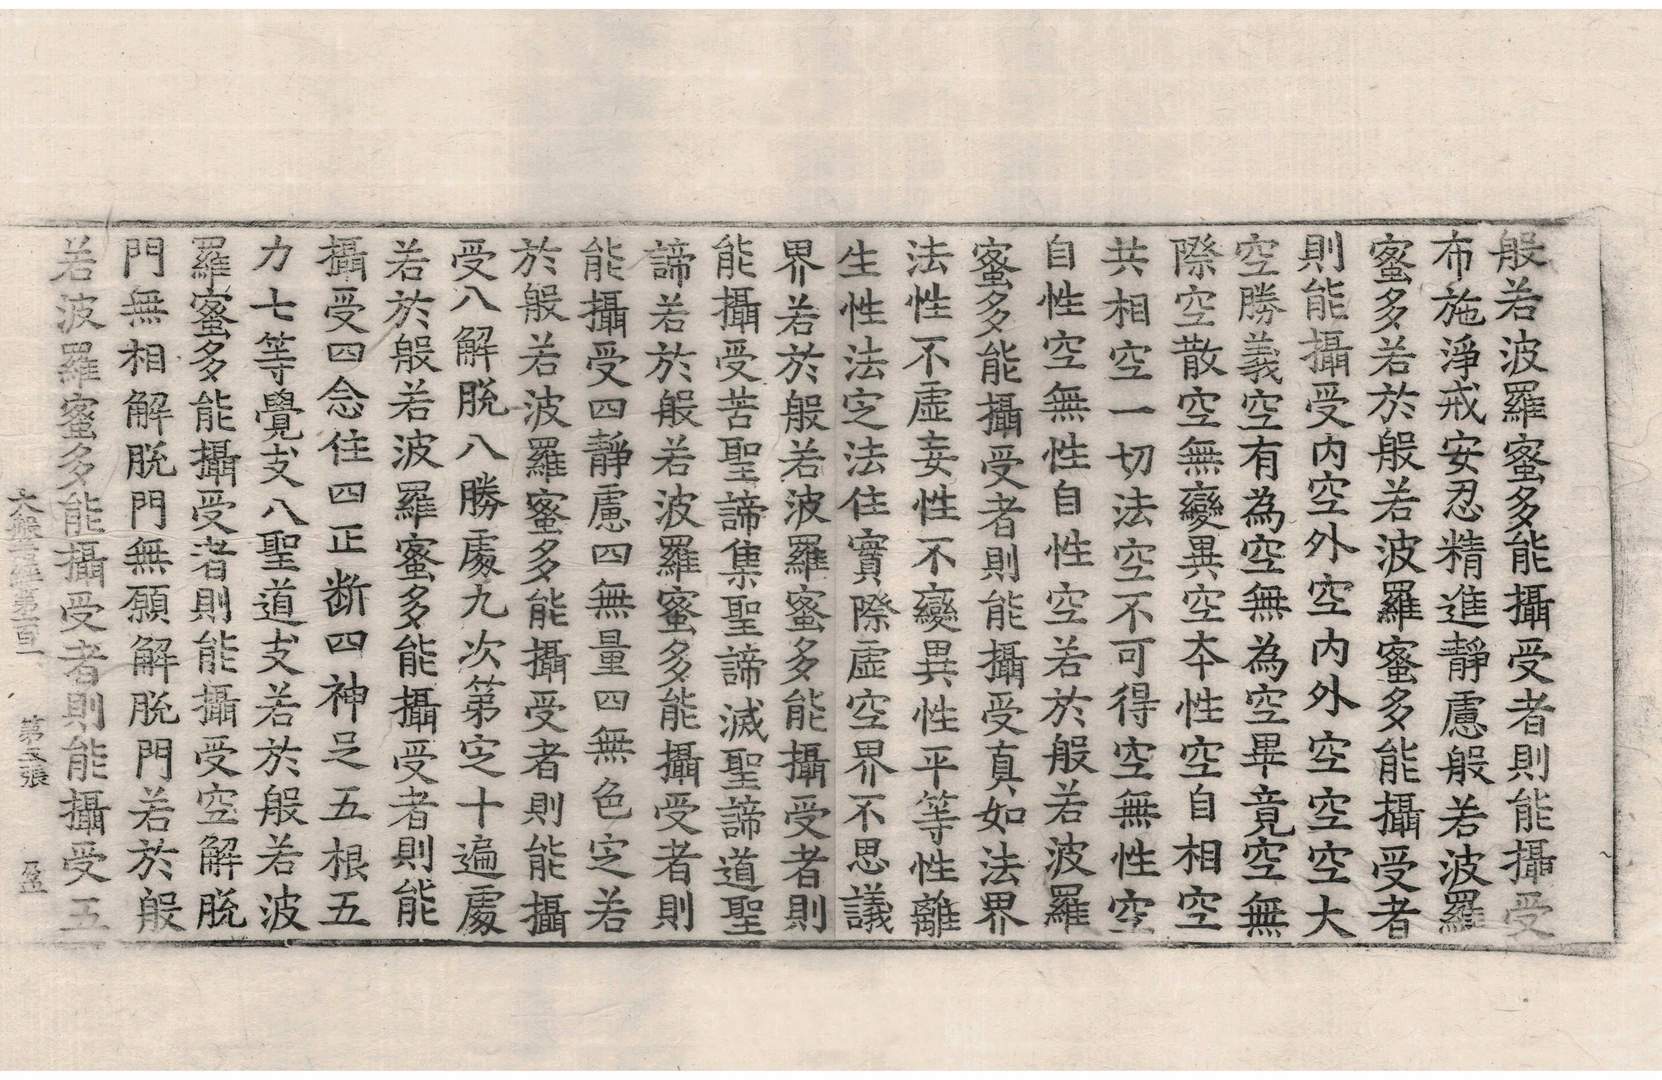 般若波羅蜜多能攝受者則能攝受
布施淨戒安忍精進靜慮般若波羅
蜜多若於般若波羅蜜多能攝受者
則能攝受內空外空內外空空空大
空勝義空有為空無為空畢竟空無
際空散空無變異空本性空自相空
共相空一切法空不可得空無性空
自性空無性自性空若於般若波羅
蜜多能攝受者則能攝受真如法界
法性不虛妄性不變異性平等性離
生性法定法住實際虛空界不思議
界若於般若波羅蜜多能攝受者則
能攝受苦聖諦集聖諦滅聖諦道聖
諦若於般若波羅蜜多能攝受者則
能攝受四靜慮四無量四無色定若
於般若波羅蜜多能攝受者則能攝
受八解脫八勝處九次第定十遍處
若於般若波羅蜜多能攝受者則能
攝受四念住四正斷四神足五根五
力七等覺支八聖道支若於般若波
羅蜜多能攝受者則能攝受空解脫
門無相解脫門無願解脫門若於般
若波羅蜜多能攝受者則能攝受五
大般若經第一百一 第五張 盈